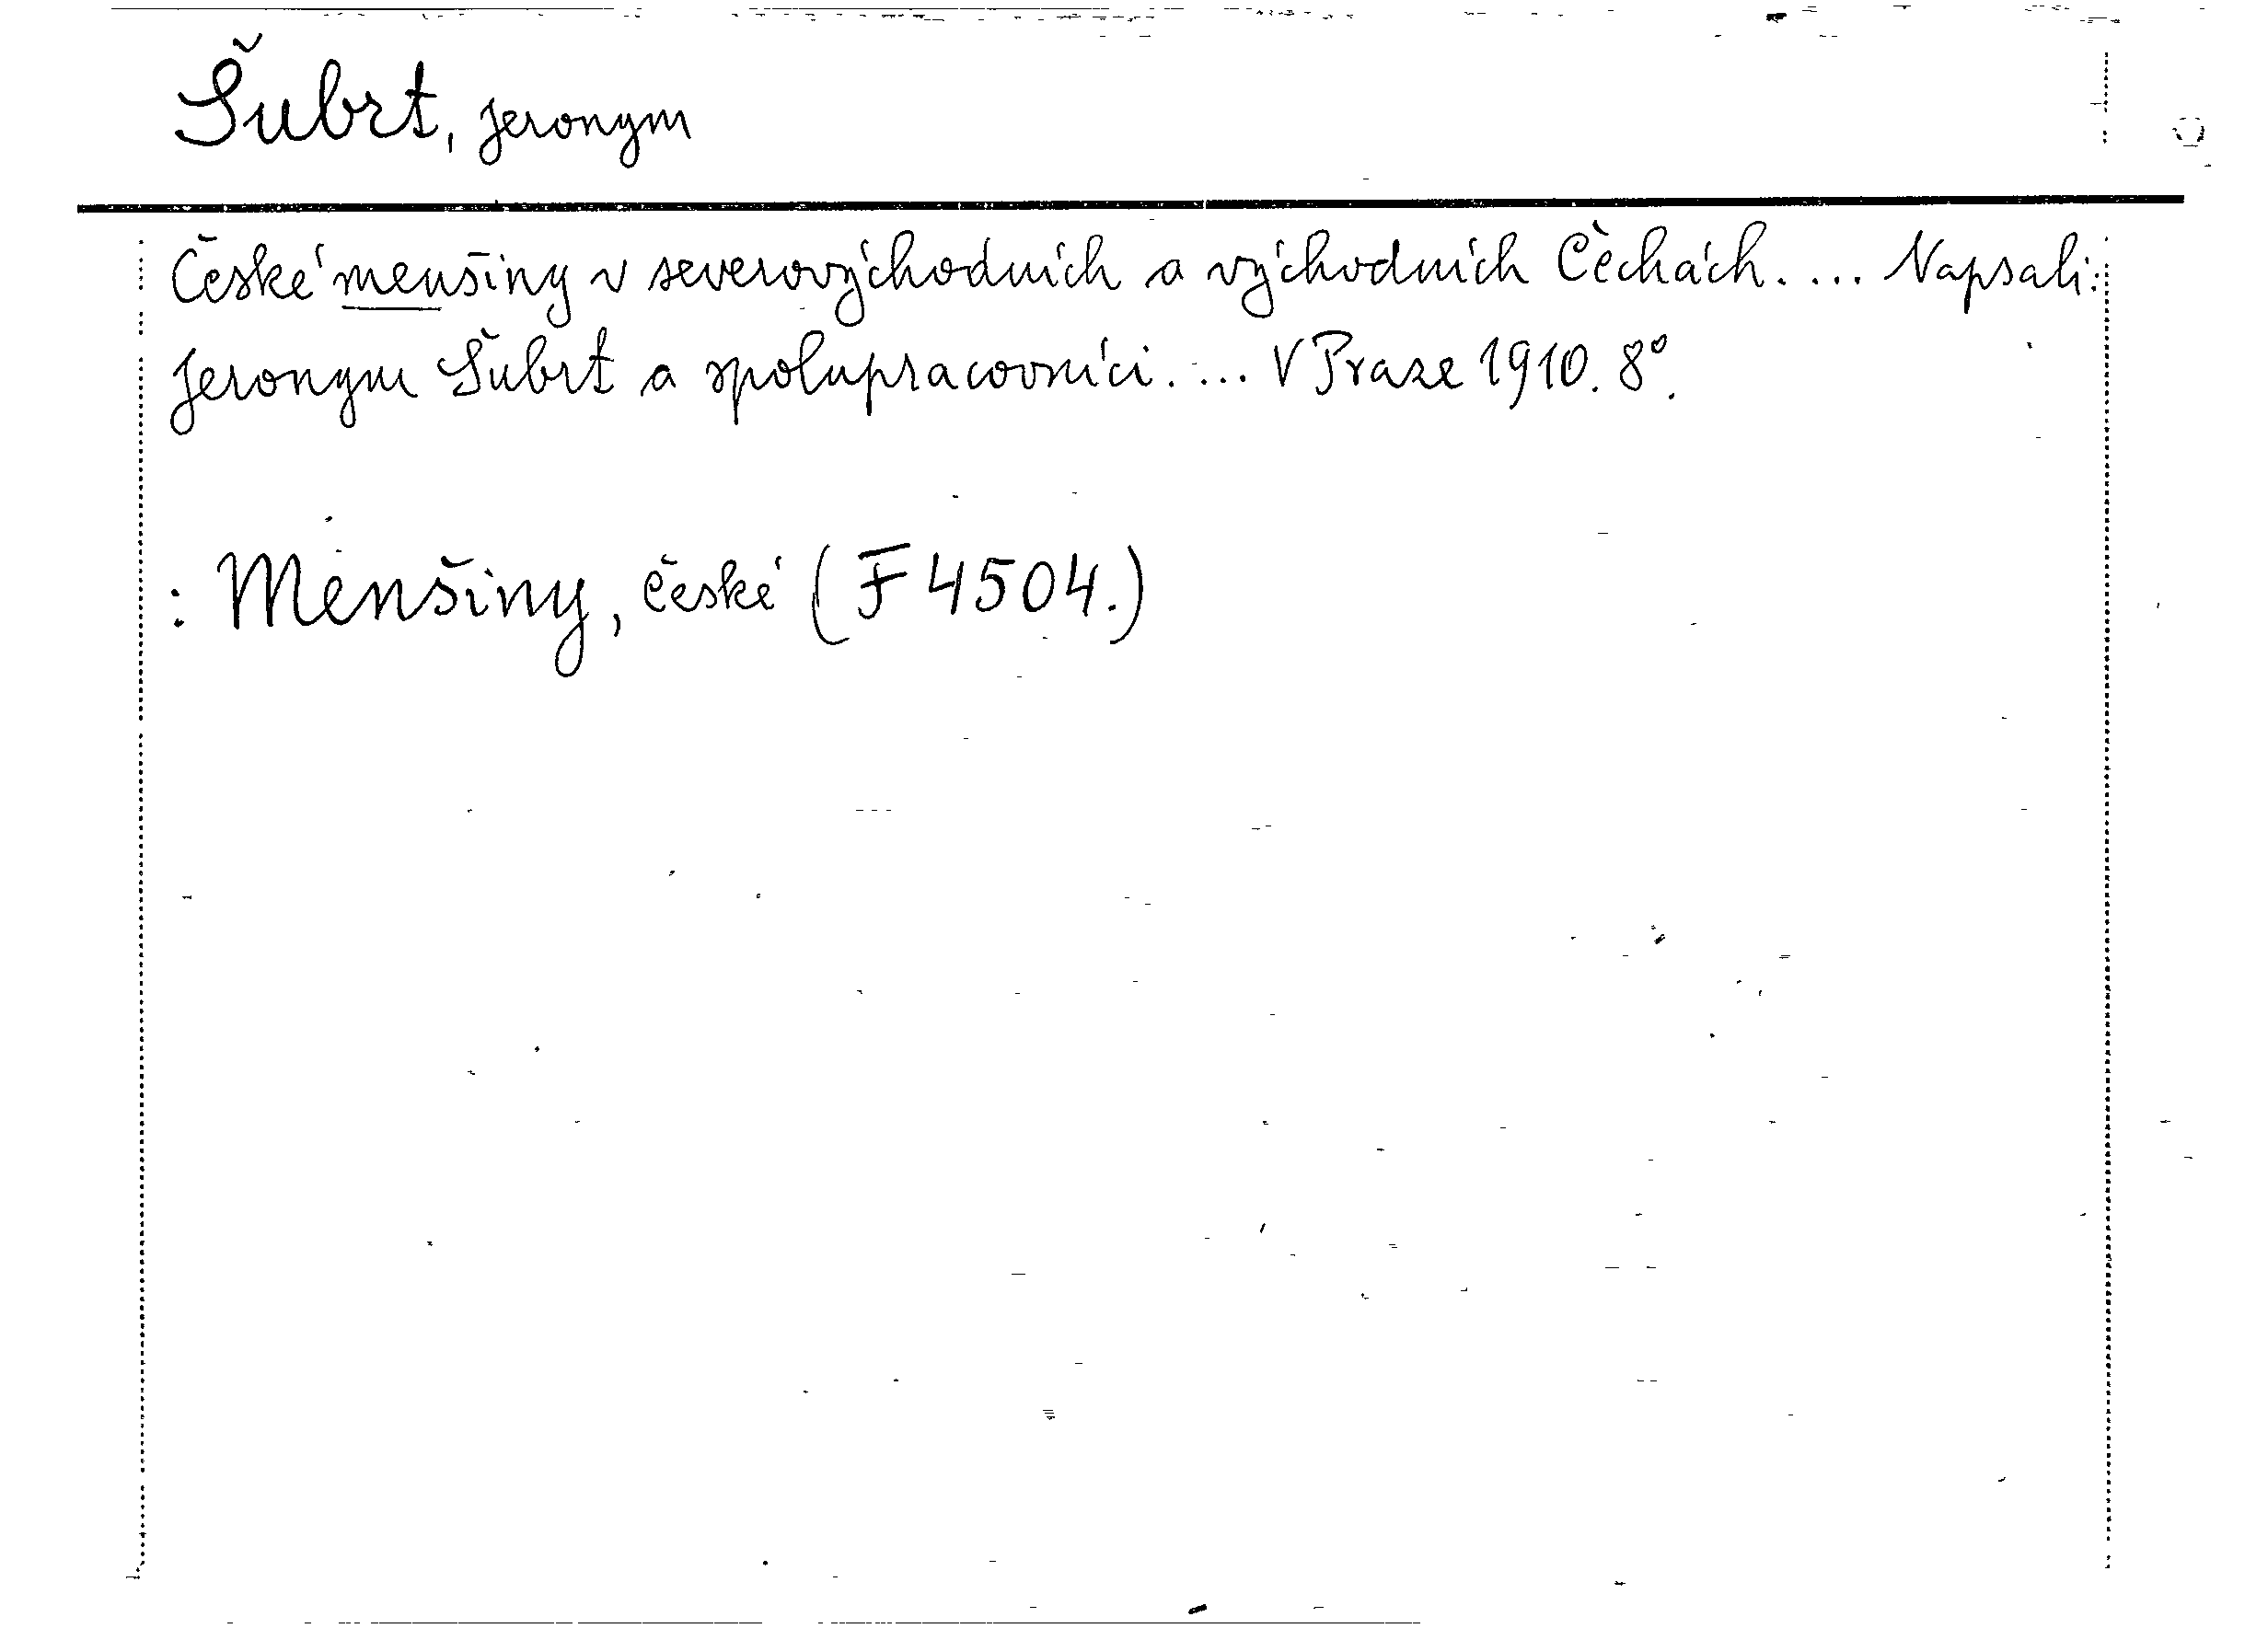 Šubrt, Jeronym
České menšiny v severovýchodních a východních Čechách. ... Napsali:
Jeronym Šubrt a spolupracovníci. ... V Praze 1910. 8°.
: Menšiny, české (F 4504.)